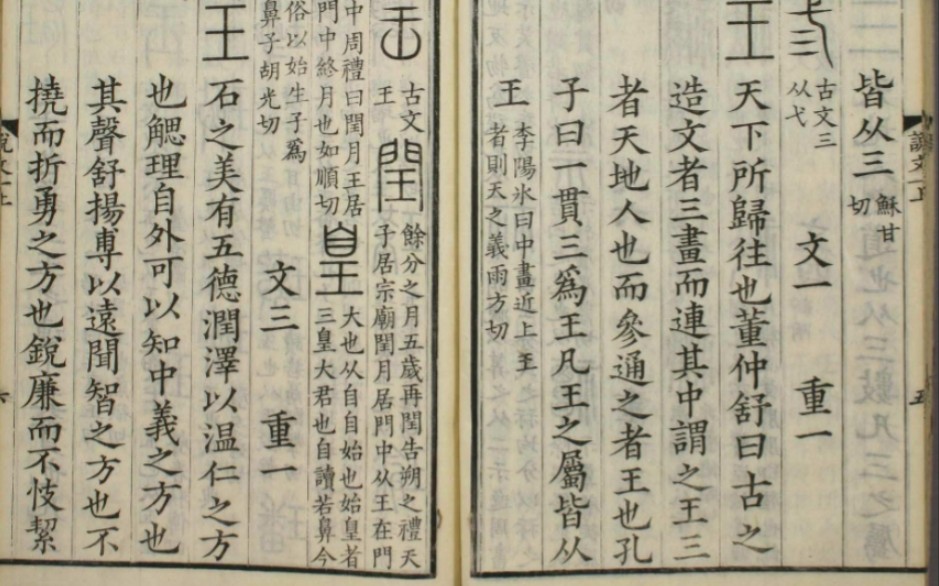 皆从三穌甘切
弎古文三从弋 文一 重一
王天下所歸往也董仲舒曰古之
造文者三畫而連其中謂之王三
者天地人也而參通之者王也孔
子曰一貫三爲王凡王之屬皆从
王李陽冰曰中畫近上王者則天之義雨方切
古文王閏餘分之月五歲再閏告朔之禮天子居宗廟閏月居門中从王在門
中周禮曰閏月王居門中終月也如順切皇大也从自自始也始皇者三皇大君也自讀若鼻今
俗以始生子爲鼻子胡光切 文三 重一
王石之美有五德潤澤以温仁之方
也䚡理自外可以知中義之方也
其聲舒揚尃以遠聞智之方也不
撓而折勇之方也銳廉而不忮絜